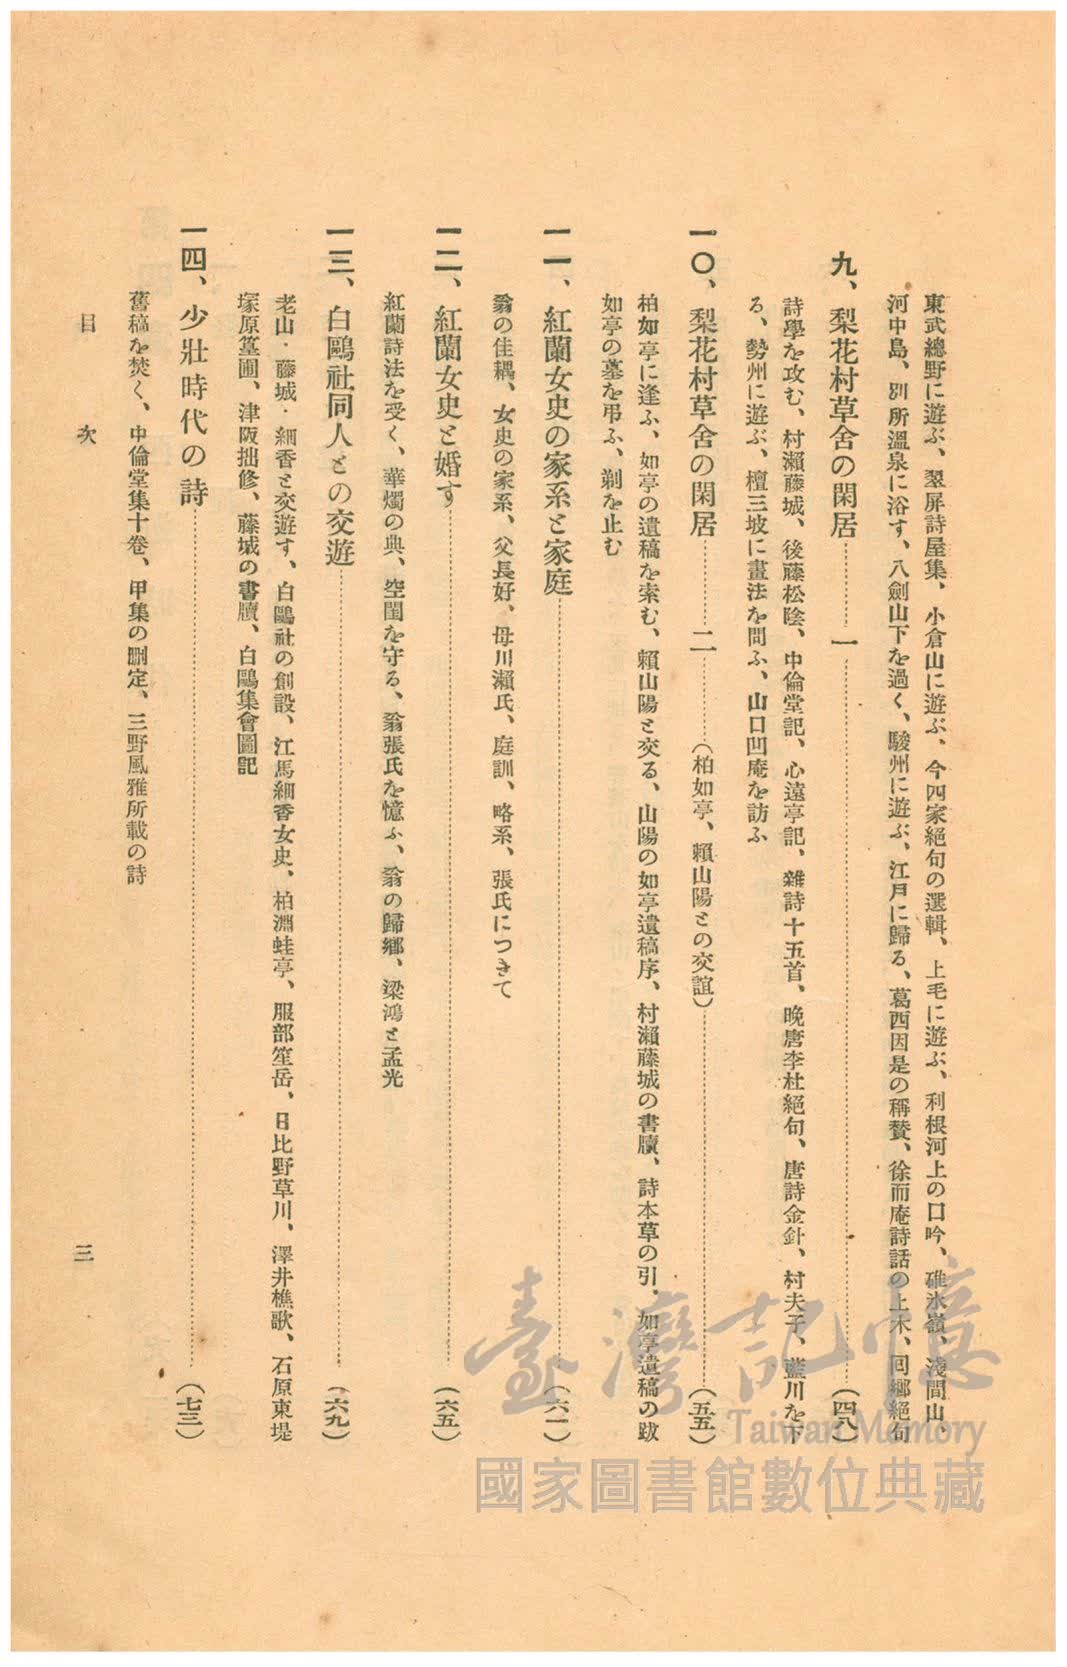 東武總野に遊ぶ、翠屏詩屋集、小倉山に遊ぶ、今四家絕句の選輯、上毛に遊ぶ、利根河上の口吟、碓氷嶺、淺間山、
河中島、別所溫泉に浴す、八劍山下を過く、駿州に遊ぶ、江戸に歸る、葛西因是の稱贊、徐而庵詩話の上木、同鄉絕句
九、梨花村草舍の閑居………一………(四八)
詩學を攻む、村瀨藤城、後藤松陰、中倫堂記、心遠亭記、雜詩十五首、晚唐李杜絕句、唐詩金針、村夫子、藍川を下
る、勢州に遊ぶ、檀三坡に畫法を問ふ、山口凹庵を訪ふ
一〇、梨花村草舍の閑居………二………(柏如亭、賴山陽との交誼)………(五五)
柏如亭に逢ふ、如亭の遺稿を索む、賴山陽と交る、山陽の如亭遺稿序、村瀨藤城の書牘、詩本草の引、如亭遺稿の跋
如亭の墓を弔ふ、剃を止む
一一、紅蘭女史の家系と家庭………(六一)
翁の佳耦、女史の家系、父長好、母川瀨氏、庭訓、略系、張氏につきて
一二、紅蘭女史と婚す………(六五)
紅蘭詩法を受く、華燭の典、空閨を守る、翁張氏を憶ふ、翁の歸鄉、梁鴻と孟光
一三、白鷗社同人との交遊………(六九)
老山・藤城・細香と交遊す、白鷗社の創設、江馬細香女史、柏淵蛙亭、服部笙岳、日比野草川、澤井樵歌、石原東堤
塚原簞圃、津阪拙修、藤城の書牘、白鷗集會圖記
一四、少壯時代の詩………(七三)
舊稿を焚く、中倫堂集十卷、甲集の刪定、三野風雅所載の詩
目次
三
臺灣記憶
Taiwan Memory
國家圖書館數位典藏